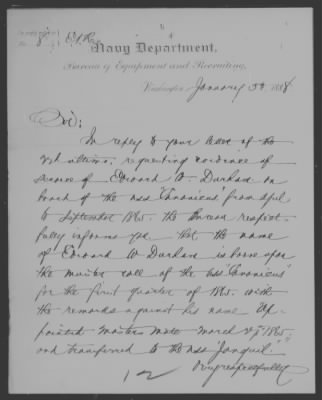 Navy Department,
Bureau of Equipment and Recruiting,
Washington January 5th 1888
Sir:
In reply to your letter of the
ultimo, requesting evidence of
service of Edward W. Durham on
board of the USS "Canonicus" from April
to September 1865, the Bureau respect-
fully informs you that the name
of Edward W Durham is borne upon
the muster roll of the USS "Canonicus"
for the first quarter of 1865, with
the remarks against his name "Ap-
pointed Masters Mate March 1865,
and transferred to the USS Jonquil."
Very respectfully
12